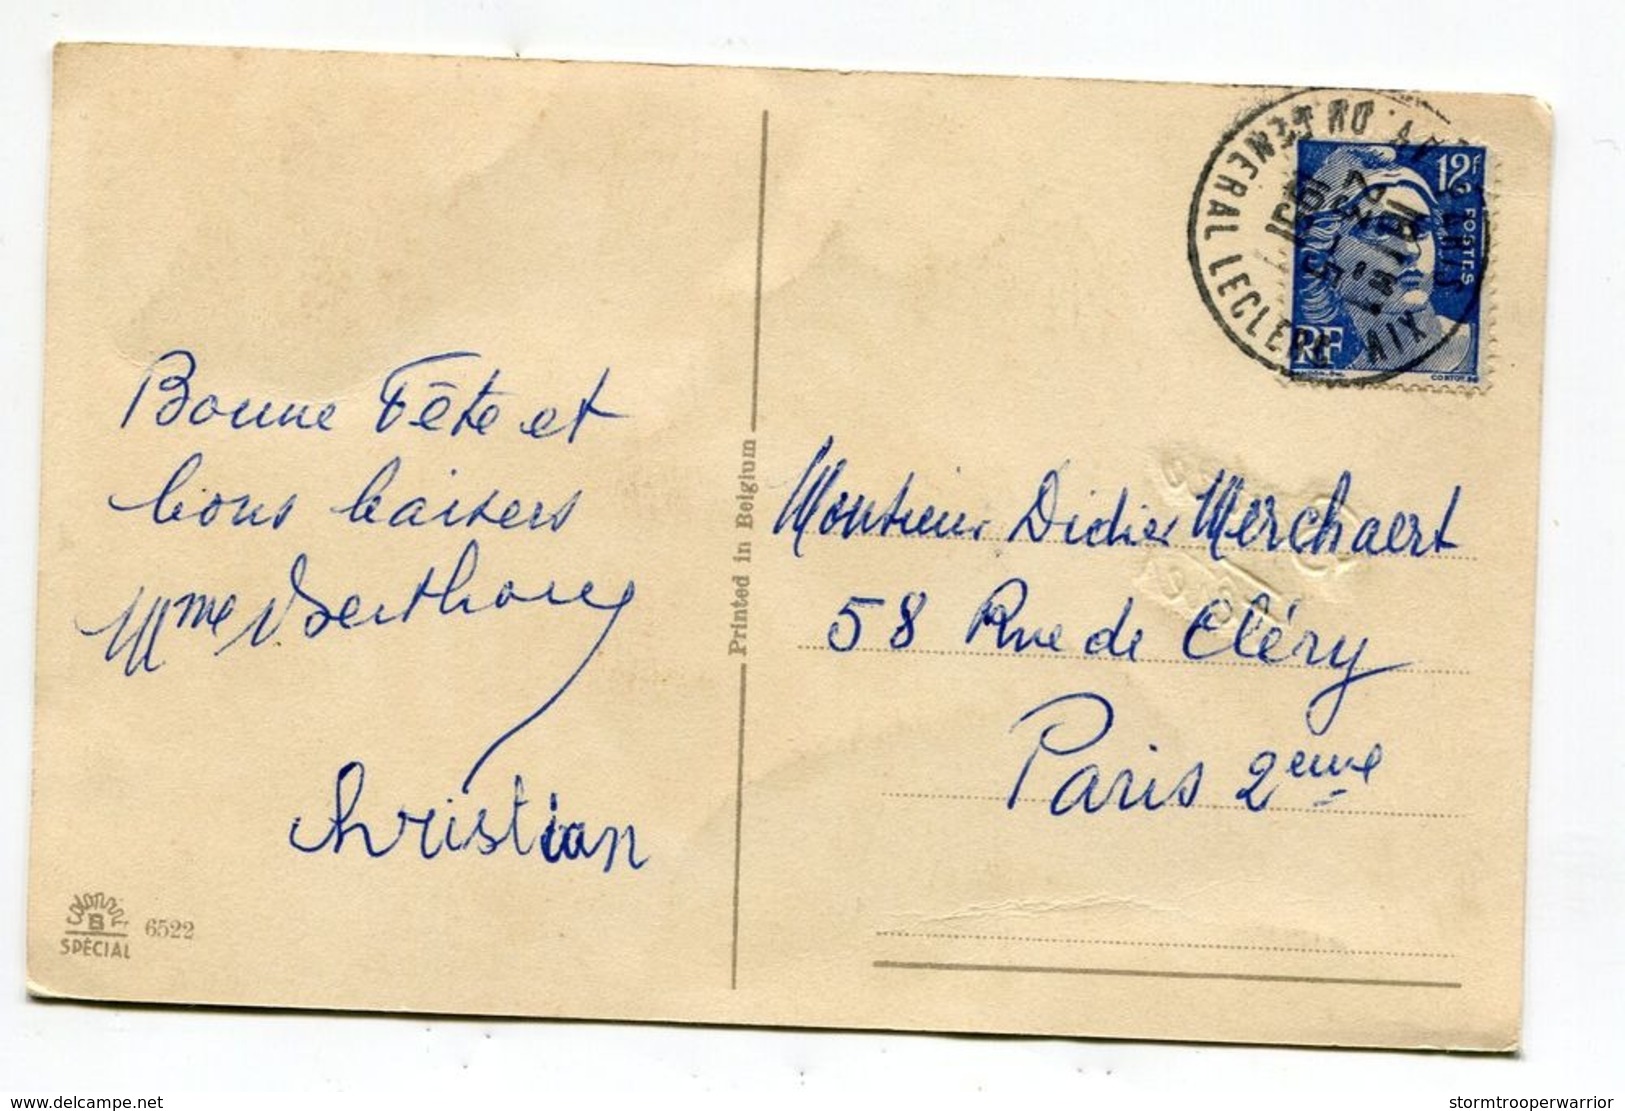 Bonne Fête et
bons baisers
Mme
Christian
Colorprint
B
SPÉCIAL
6522
Printed in Belgium
12F
POSTES
RF
GÉNÉRAL LECLERC
AIX
Monsieur Didier Merchaert
58 Rue de Cléry
Paris 2eme
www.delcampe.net
stormtrooperwarrior